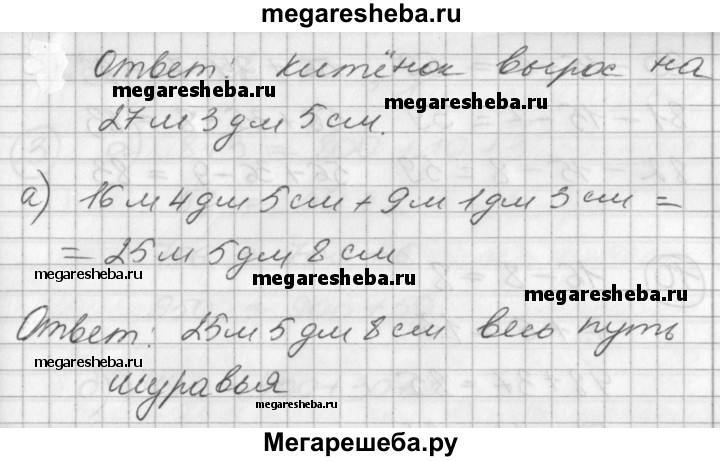 megaresheba.ru
Ответ: китёнок вырос на
megaresheba.ru
megaresheba.ru
27 м 3 дм 5 см.
а) 16 м 4 дм 5 см + 9 м 1 дм 3 см =
megaresheba.ru
= 25 м 5 дм 8 см
megaresheba.ru
megaresheba.ru
megaresheba.ru
Ответ: 25 м 5 дм 8 см весь путь
megaresheba.ru
муравья
megaresheba.ru
Мегарешеба.ру